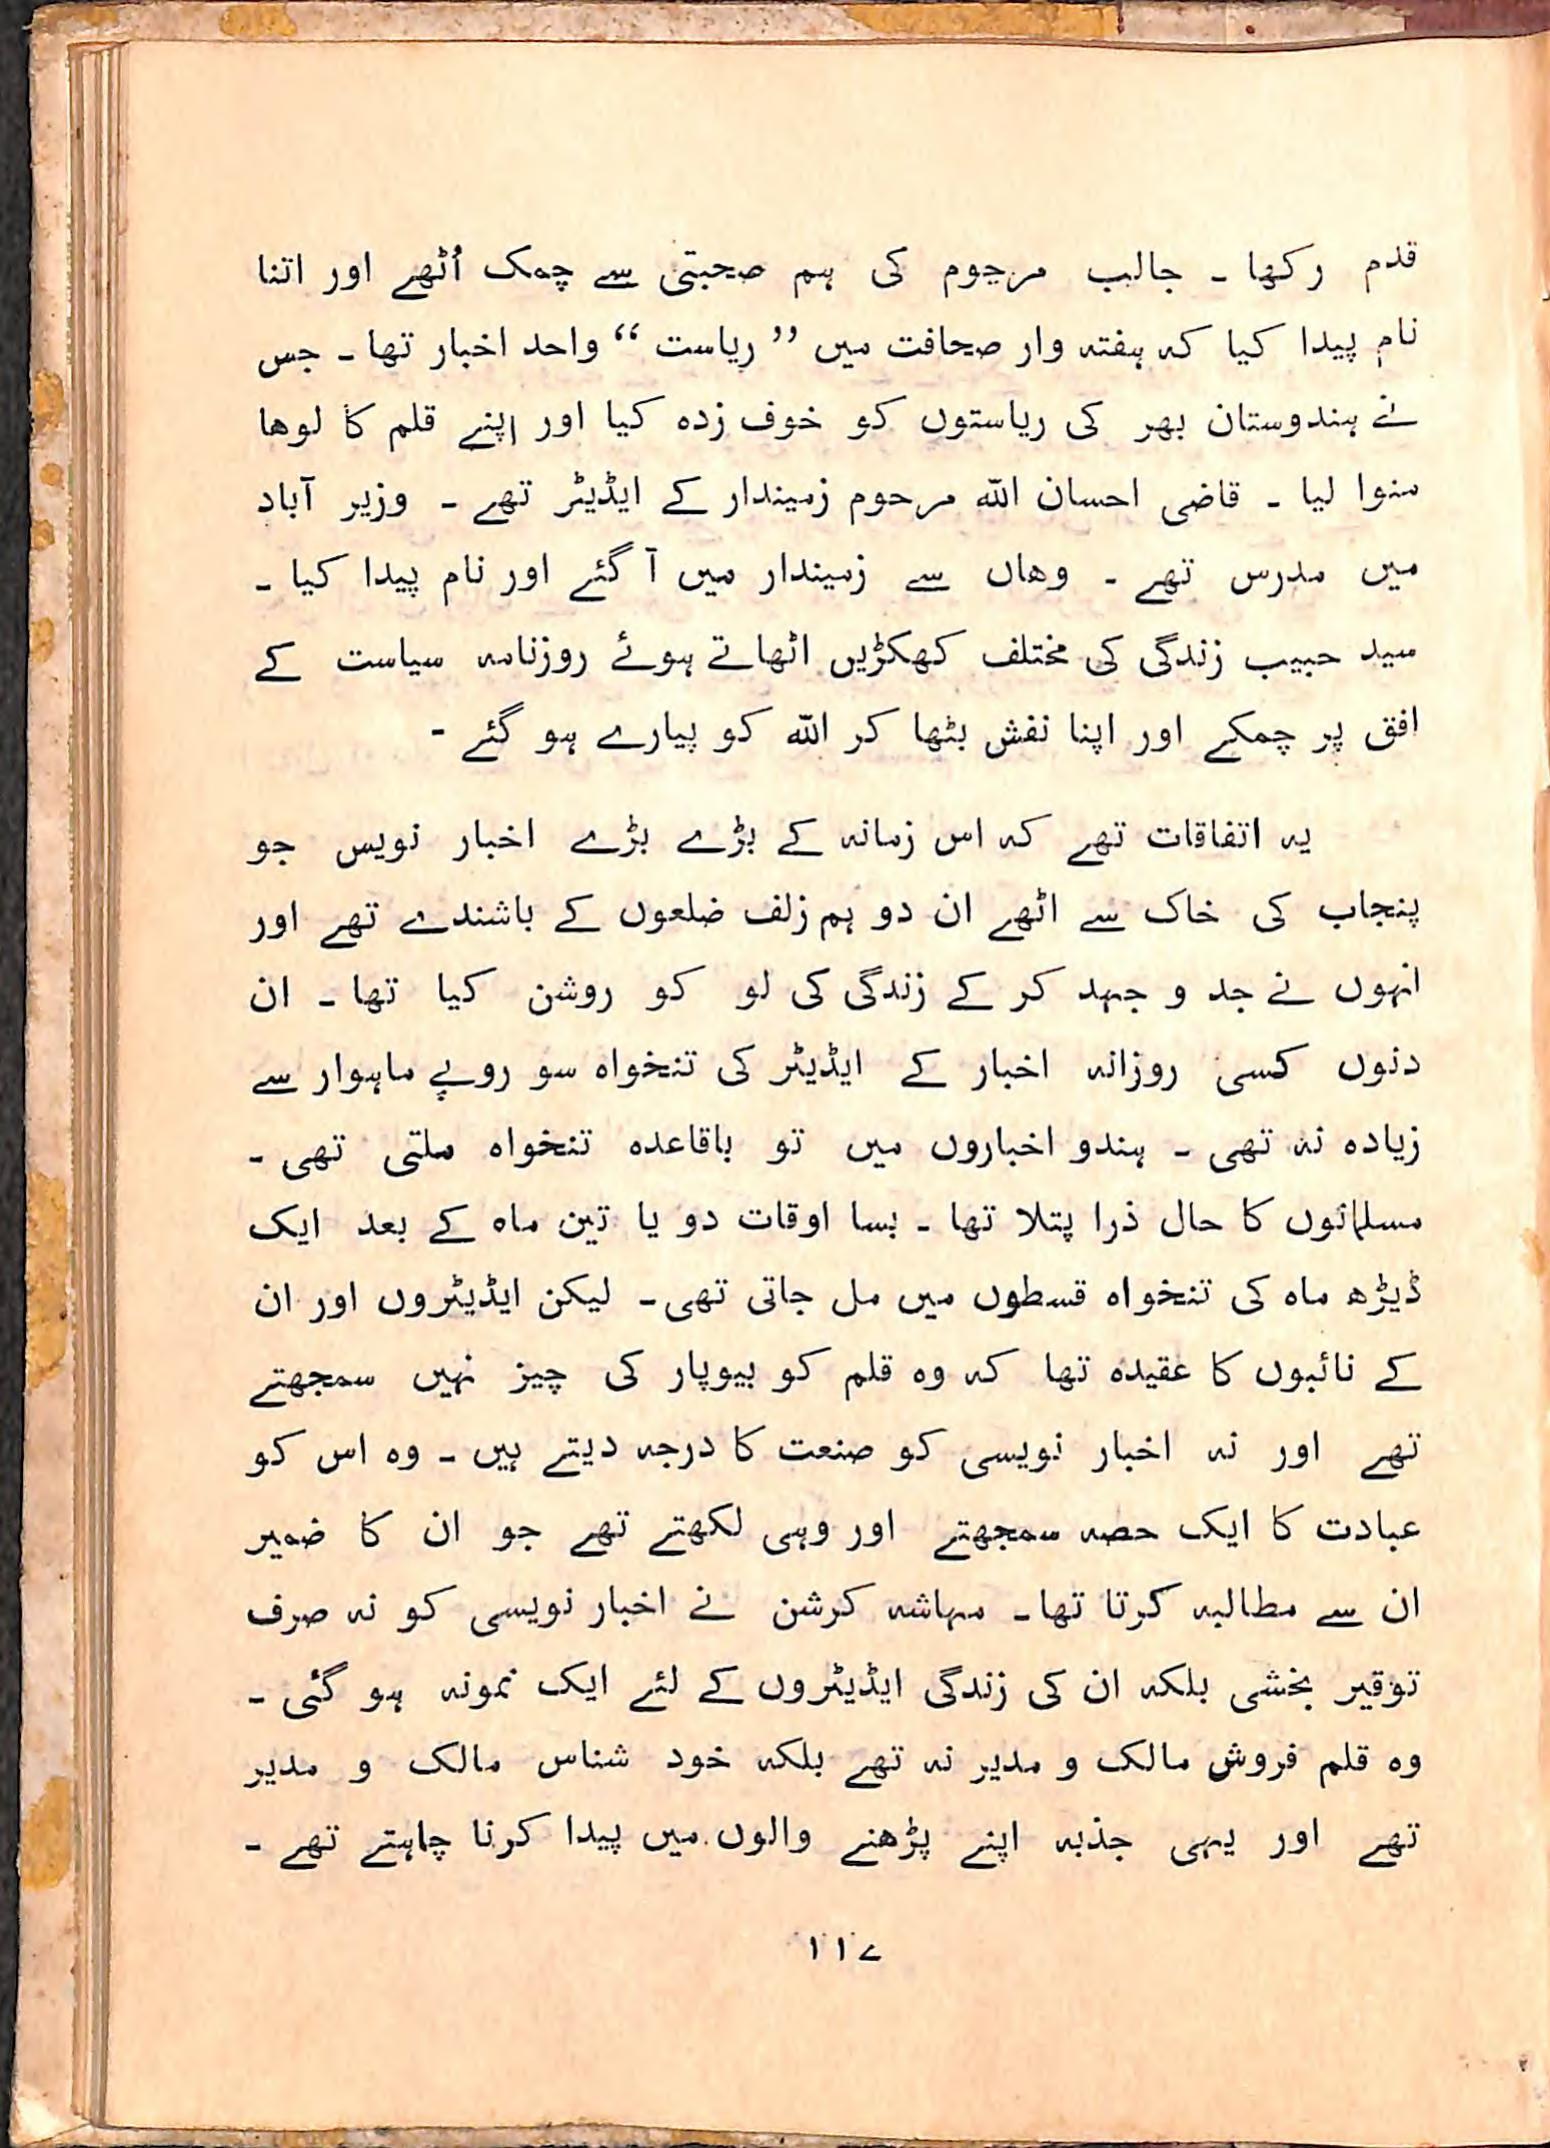 قدم رکھا ۔ جالب مرحوم کی ہم صحبتی سے چمک اُٹھے اور اتنا
نام پیدا کیا کہ ہفتہ وار صحافت میں ’’ ریاست ‘‘ واحد اخبار تھا ۔ جس
نے ہندوستان بھر کی ریاستوں کو خوف زدہ کیا اور اپنے قلم کا لوھا
منوا لیا ۔ قاضی احسان اللہ مرحوم زمیندار کے ایڈیٹر تھے ۔ وزیر آباد
میں مدرس تھے ۔ وھاں سے زمیندار میں آ گئے اور نام پیدا کیا ۔
سید حبیب زندگی کی مختلف کھکڑیں اٹھاتے ہوئے روزنامہ سیاست کے
افق پر چمکے اور اپنا نقش بٹھا کر اللہ کو پیارے ہو گئے ۔
یہ اتفاقات تھے کہ اس زمانہ کے بڑے بڑے اخبار نویس جو
پنجاب کی خاک سے اٹھے ان دو ہم زلف ضلعوں کے باشندے تھے اور
انہوں نے جد و جہد کر کے زندگی کی لو کو روشن کیا تھا ۔ ان
دنوں کسی روزانہ اخبار کے ایڈیٹر کی تنخواہ سو روپے ماہوار سے
زیادہ نہ تھی ۔ ہندو اخباروں میں تو باقاعدہ تنخواہ ملتی تھی ۔
مسلمانوں کا حال ذرا پتلا تھا ۔ بسا اوقات دو یا تین ماہ کے بعد ایک
ڈیڑھ ماہ کی تنخواہ قسطوں میں مل جاتی تھی ۔ لیکن ایڈیٹروں اور ان
کے نائبوں کا عقیدہ تھا کہ وہ قلم کو بیوپار کی چیز نہیں سمجھتے
تھے اور نہ اخبار نویسی کو صنعت کا درجہ دیتے ہیں ۔ وہ اس کو
عبادت کا ایک حصہ سمجھتے اور وہی لکھتے تھے جو ان کا ضمیر
ان سے مطالبہ کرتا تھا ۔ مہاشہ کرشن نے اخبار نویسی کو نہ صرف
توقیر بخشی بلکہ ان کی زندگی ایڈیٹروں کے لئے ایک نمونہ ہو گئی ۔
وہ قلم فروش مالک و مدیر نہ تھے بلکہ خود شناس مالک و مدیر
تھے اور یہی جذبہ اپنے پڑھنے والوں میں پیدا کرنا چاہتے تھے ۔
۱۱۷